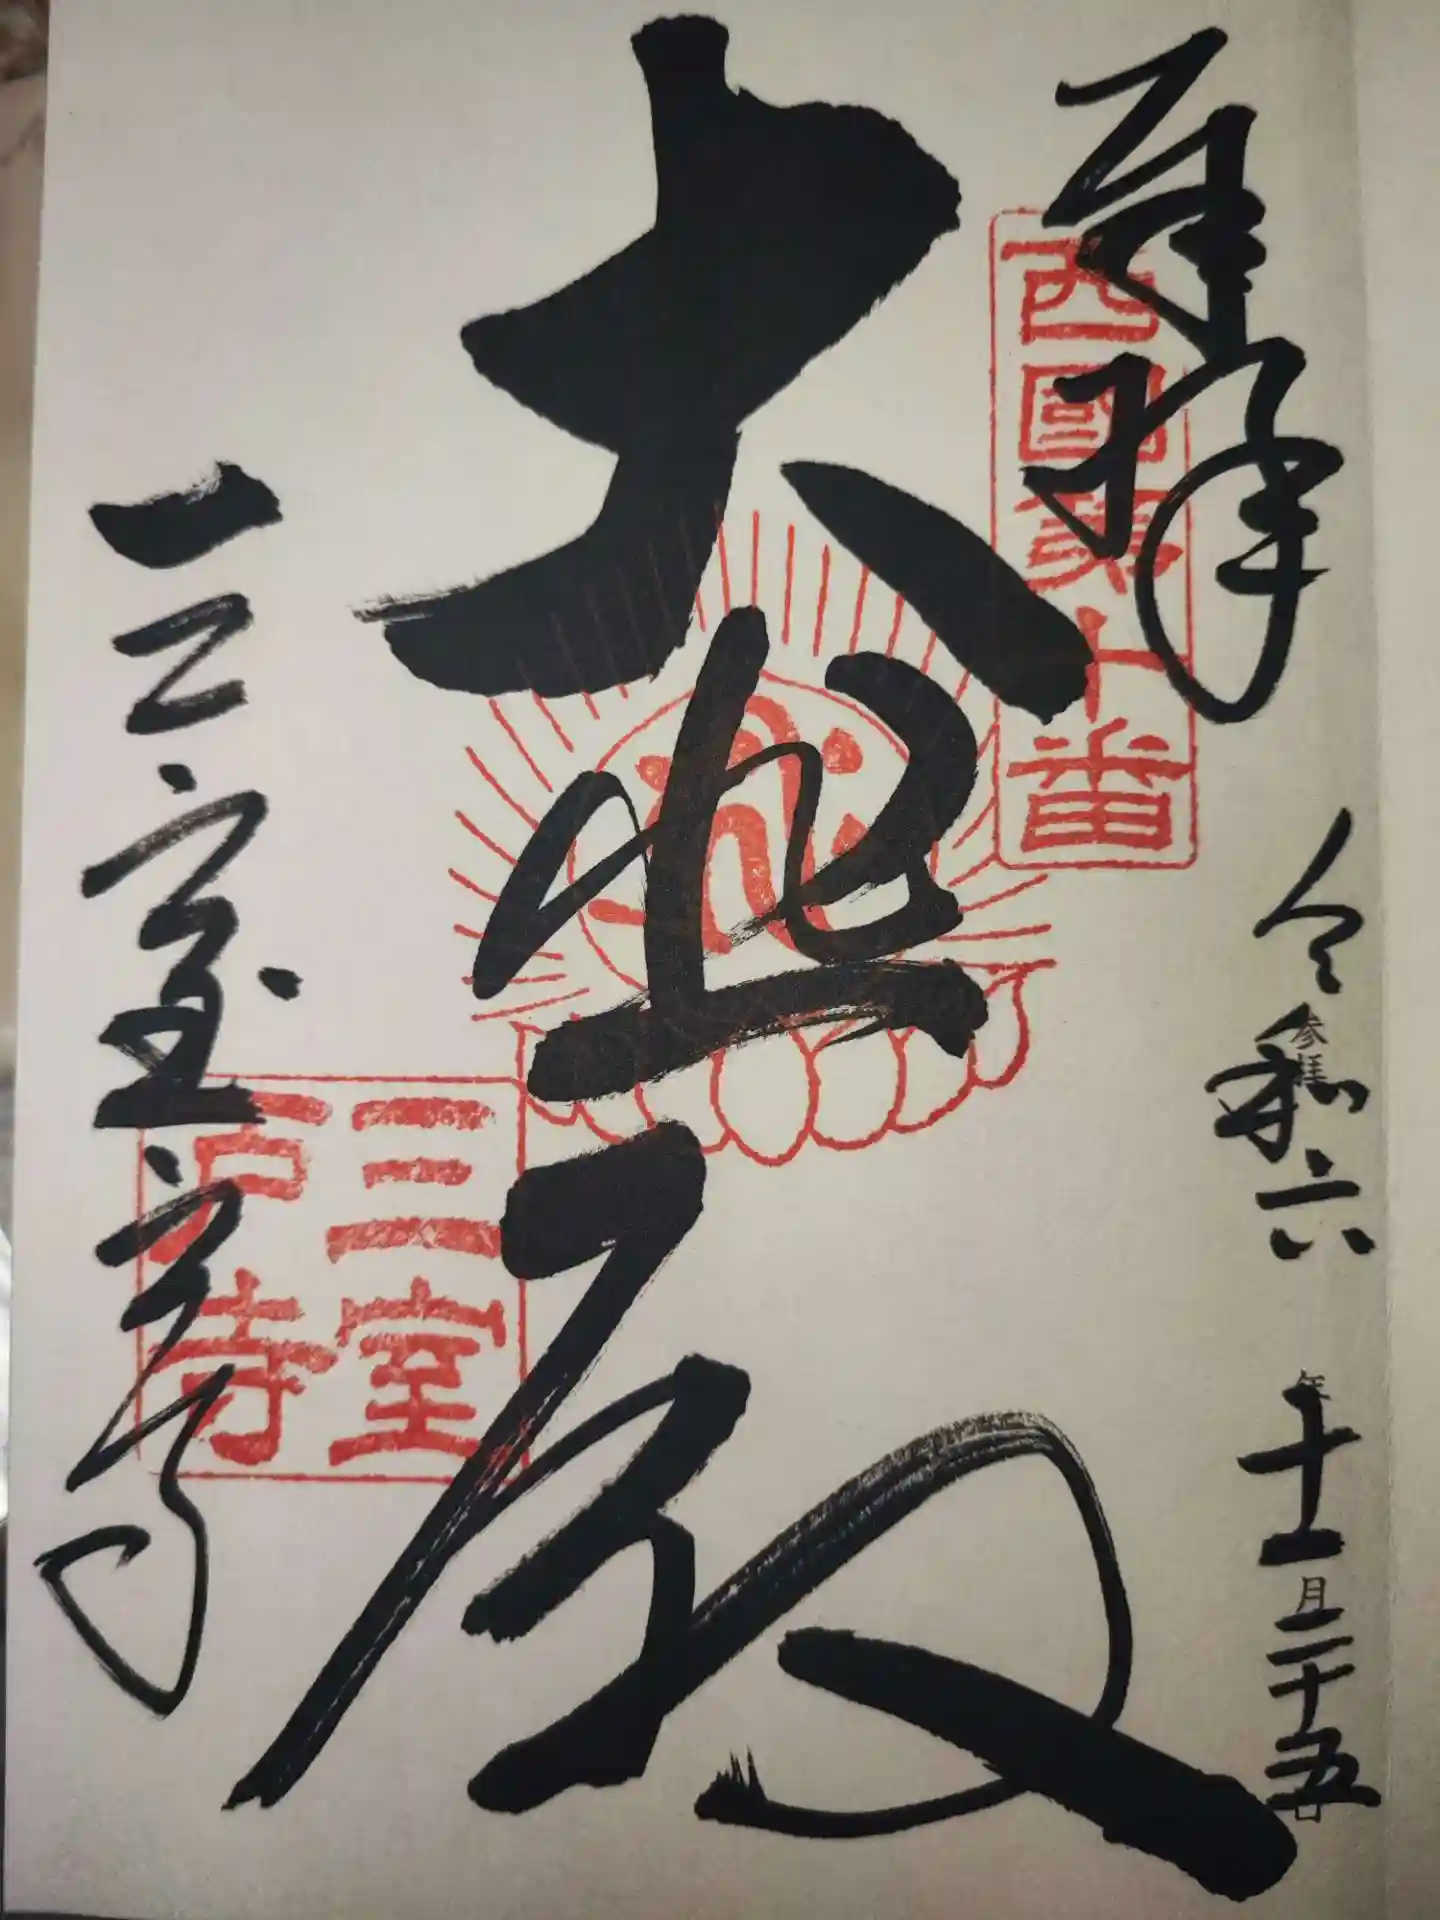 奉拝
西國第十番
参拝
令和六年十一月二十五日
大悲殿
三室
戸寺
三室戸寺